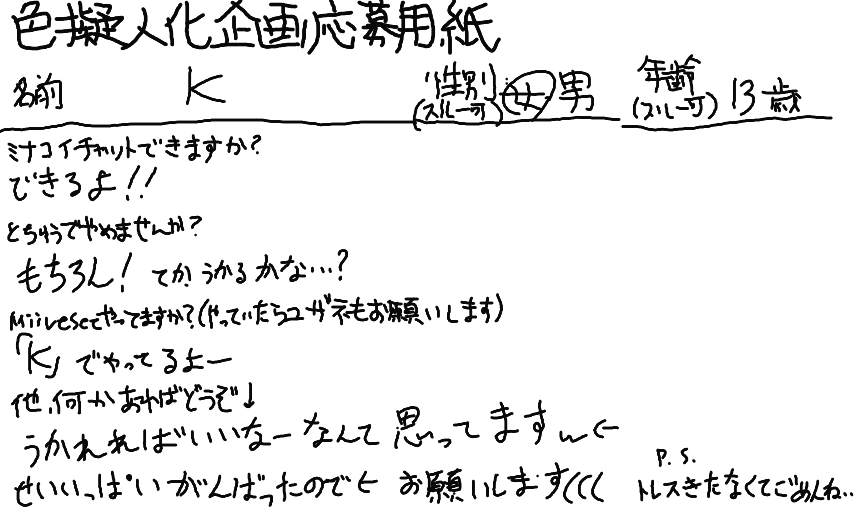 色擬人化企画応募用紙
名前 K 性別(スルー可) 女 男 年齢(スルー可) 13歳
ミナコイチャットできますか?
できるよ!!
とちゅうでやめませんか?
もちろん! てか、うかるかな…?
Miiverseでやってますか?(やっていたらユザネもお願いします)
「K」でやってるよー
他、何かあればどうぞ↓
うかれればいいなーなんて思ってますw←
せいいっぱいがんばったので← お願いします(((
P.S.
トレスきたなくてごめんね..